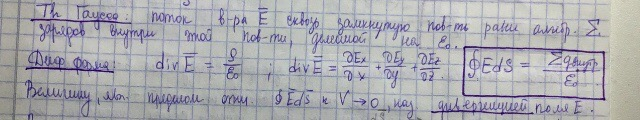 Th Гаусса: поток в-ра E̅ сквозь замкнутую пов-ть равен алгебр. Σ
зарядов внутри этой пов-ти, делённой на ε₀.
Диф форма: div E̅ = ρ/ε₀ ; div E̅ = ∂Ex/∂x + ∂Ey/∂y + ∂Ez/∂z. ∮EdS = Σqвнутр/ε₀
Величину, явл. пределом отн. ∮E̅dS̅ к V→0, наз дивергенцией поля E.